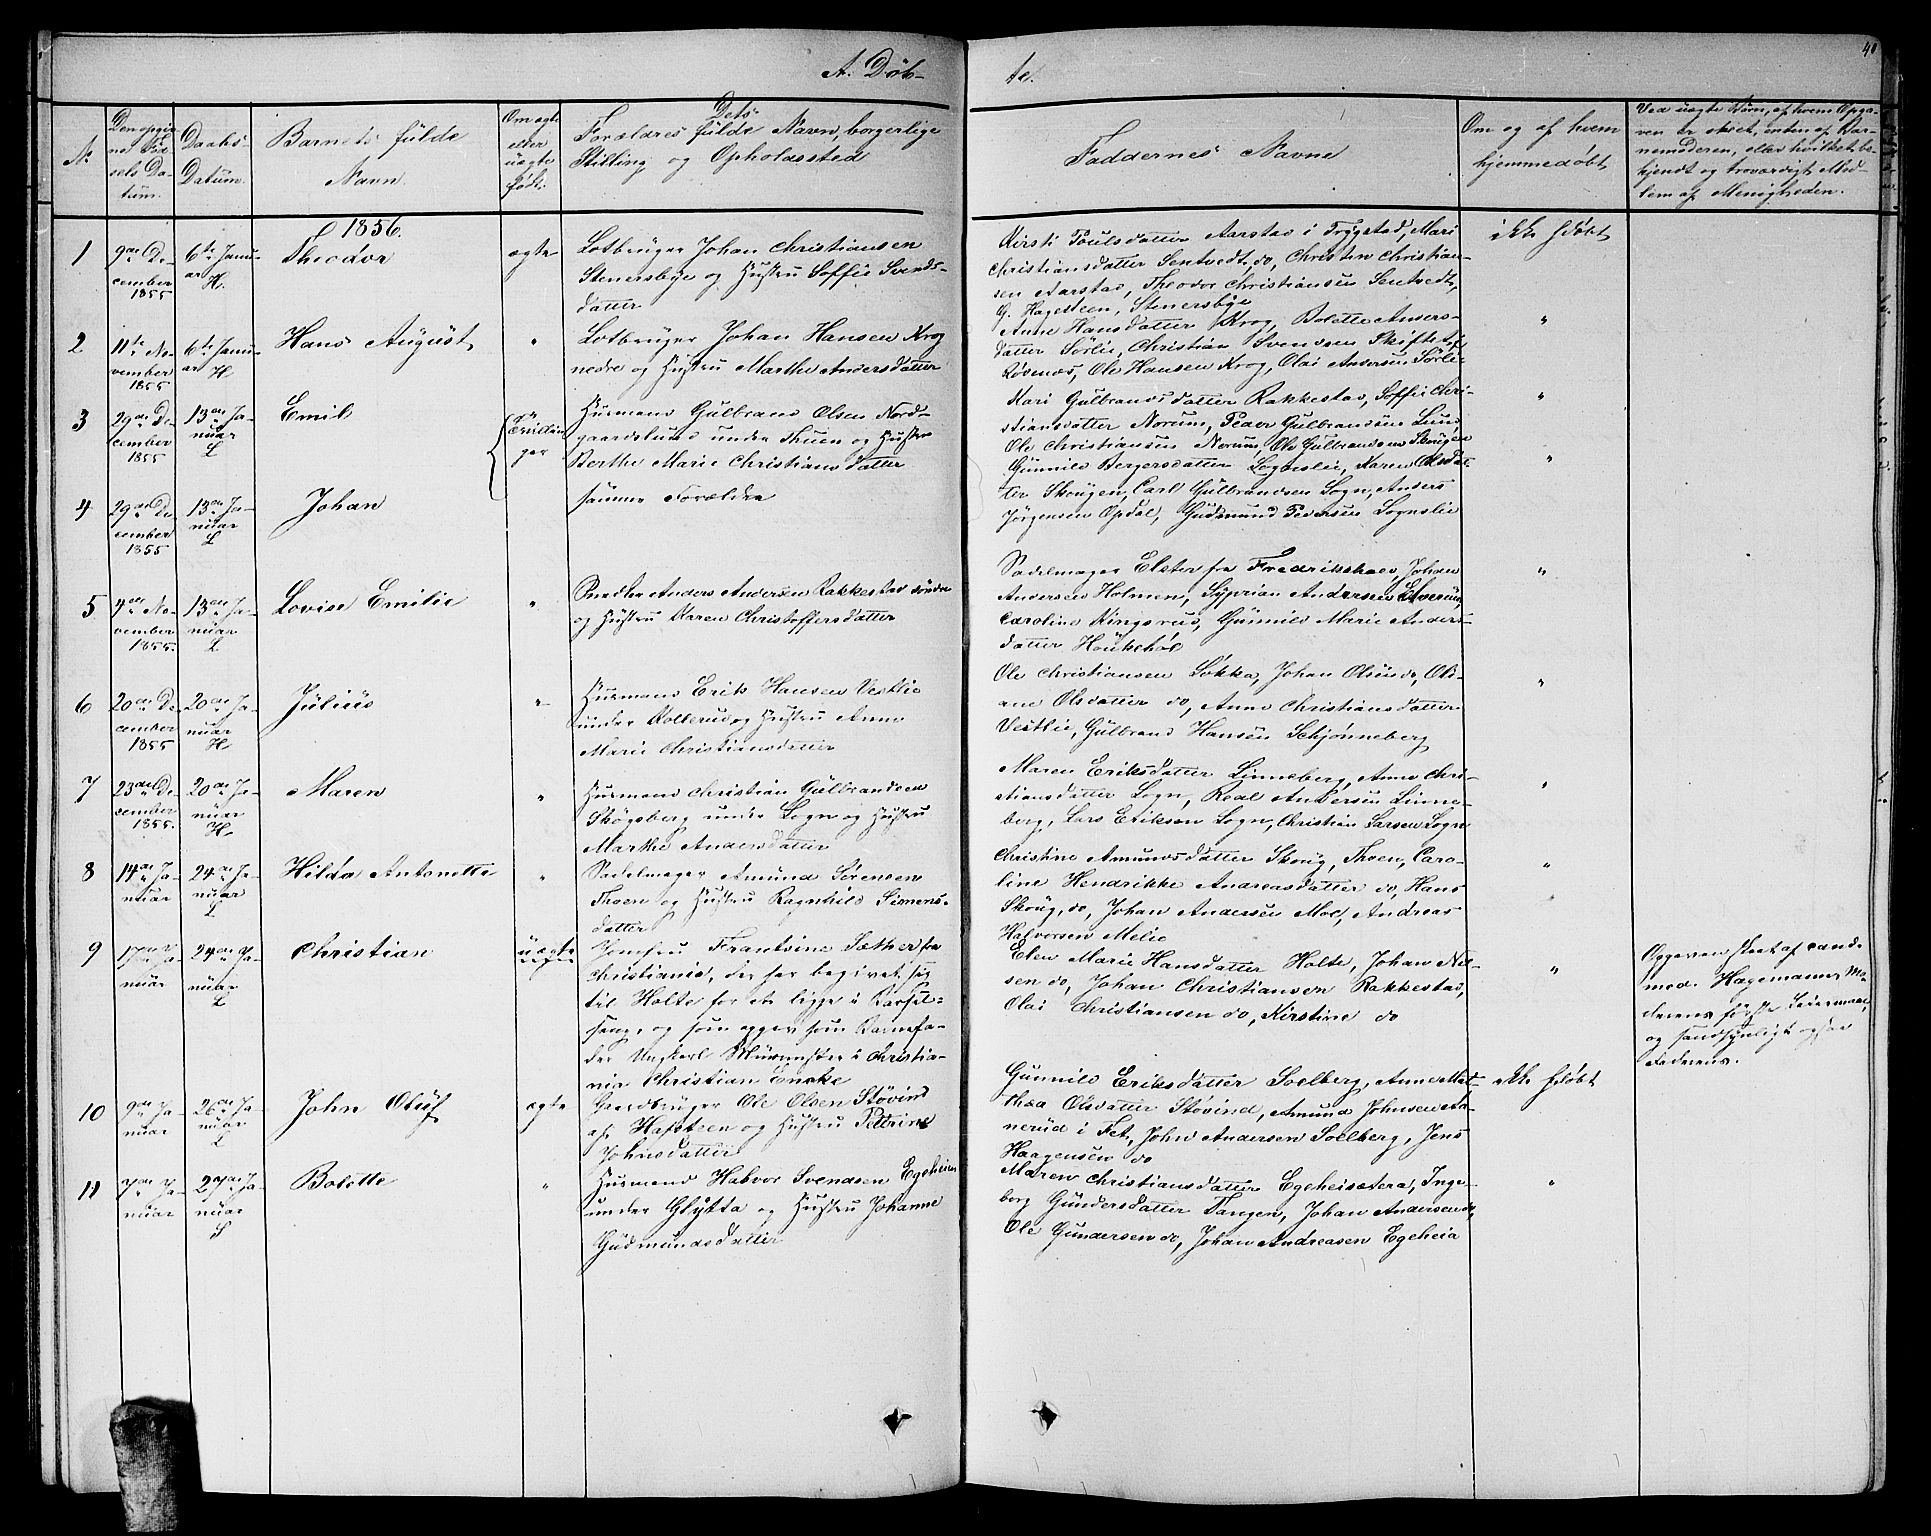 A. Døb-
te.
40
No
Den opgiv-
ne Fød-
sels Da-
tum.
Daabs-
Datum.
Barnets fulde
Navn.
Om ægte
eller
uægte
født.
Dets
Forældres fulde Navn, borgerlige
Stilling og Opholdssted
Faddernes Navne
Om og af hvem
hjemmedøbt
Ved uægte Børn, af hvem Opga-
ven er skeet, enten af Bar-
nemoderen, eller hvilket be-
kjendt og troværdigt Med-
lem af Menigheden.
1856.
1
9de De-
cember
1855
6te Janu-
ar
H.
Theodor
ægte
Lotbruger Johan Christiansen
Stenersbye og Hustru Soffie Svends-
datter
Kirsti Poulsdatter Aarstad i Trygstad, Mari
Christiansdatter Sentvedt, do, Christen Christian-
sen Aarstad, Theodor Christiansen Sentvedt,
G. Hagesteen, Stenersbye
ikke hdøbt
2
11te No-
vember
1855
6te Janu-
ar H
Hans August
"
Lotbruger Johan Hansen Krog
nedre og Hustru Marthe Andersdatter
Anne Hansdatter Krog, Bolette Anders-
datter Sørlie, Christian Svendsen Skiftet,
Løvenæs, Ole Hansen Krog, Olai Andersen Sørlie
"
3
29de De-
cember
1855
13de Ja-
nuar
L
Emil
Tvillin-
ger
Husmand Gulbrand Olsen Nord-
gaardslund under Thuen og Hustru
Berthe Marie Christiansdatter
Kari Gulbrandsdatter Rakkestad, Soffie Chri-
stiansdatter Norum, Peder Gulbrandsen Lund,
Ole Christiansen Norum, Ole Gulbrandsen Skougen
"
4
29de De-
cember
1855
13de Ja-
nuar
L
Johan
samme Forældre
Gunnild Bergersdatter Sognslie, Karen Olsdat-
ter Skougen, Carl Gulbrandsen Sogn, Anders
Jørgensen Opdal, Gudmund Pedersen Sognslie
"
5
4de No-
vember
1855.
13de Ja-
nuar
L.
Lovise Emilie
"
Anders Andersen Rakkestad søndre
og Hustru Karen Christoffersdatter
Sadelmager Elster fra Fredrikshald, Johan
Andersen Holmen, Syprian Andersen
Caroline Ringsrud, Gunnild Marie Anders-
datter Haukehol
"
6
20de De-
cember
1855
20de Ja-
nuar
H
Julius
"
Husmand Erik Hansen Vestlie
under Kollerud og Hustru Anne
Marie Christiansdatter
Ole Christiansen Løkka, Johan Olsen do, Oli-
ane Olsdatter do, Anne Christiansdatter
Vestlie, Gulbrand Hansen Schjønneberg
"
7
23de De-
cember
1855.
20de Ja-
nuar
H.
Maren
"
Husmand Christian Gulbrandsen
Skogsberg under Sogn og Hustru
Marthe Andersdatter
Maren Eriksdatter Linneberg, Anne Chri-
stiansdatter Sogn, Real Andersen Linne-
berg, Lars Eriksen Sogn, Christian Larsen Sogn
"
8
14de Ja-
nuar
24de Ja-
nuar
L
Hilda Antonette
"
Sadelmager Amund Sørensen
Thoen og Hustru Ragnhild Simens-
datter
Christine Amundsdatter Skoug, Thoen, Caro-
line Hendrikke Andreasdatter do, Hans
Skoug, do, Johan Andersen Moe, Andreas
Halvorsen Melie
"
9
17de Ja-
nuar
24de Ja-
nuar
L
Christian
uægte
Jomfru Frantsine Sæther fra
Christiania, der har begivet sig
til Holte for at ligge i Barsel-
seng, og som opgav som Barnefa-
der Ungkarl Muurmester i Christia-
nia Christian Encke
Elen Marie Hansdatter Holte, Johan Niel-
sen do, Johan Christiansen Rakkestad,
Olai Christiansen do, Kirstine do
"
Opgaven skeet af cand.
med. Hagemann, Mo-
derens første Leiermaal,
og sandsynligt ogsaa
Faderens.
10
9de Ja-
nuar
26de Ja-
nuar
L
John Oluf
ægte
Gaardbruger Ole Olsen Støvind
af Hafsteen og Hustru Pettrine
Johnsdatter
Gunnild Eriksdatter Soelberg, Anne Mat-
hea Olsdatter Støvind, Amund Johnsen Aa-
nerud i Fet, John Andersen Soelberg, Jens
Haagensen do
ikke hdøbt
11
7de Ja-
nuar
27de Ja-
nuar
S
Bolette
"
Husmand Halvor Svendsen Egeheien
under Glytta og Hustru Johanne
Gudmundsdatter
Maren Christiansdatter Egeheisætera, Inge-
borg Gundersdatter Tangen, Johan Andersen do,
Ole Gundersen do, Johan Andreasen Egeheia
"